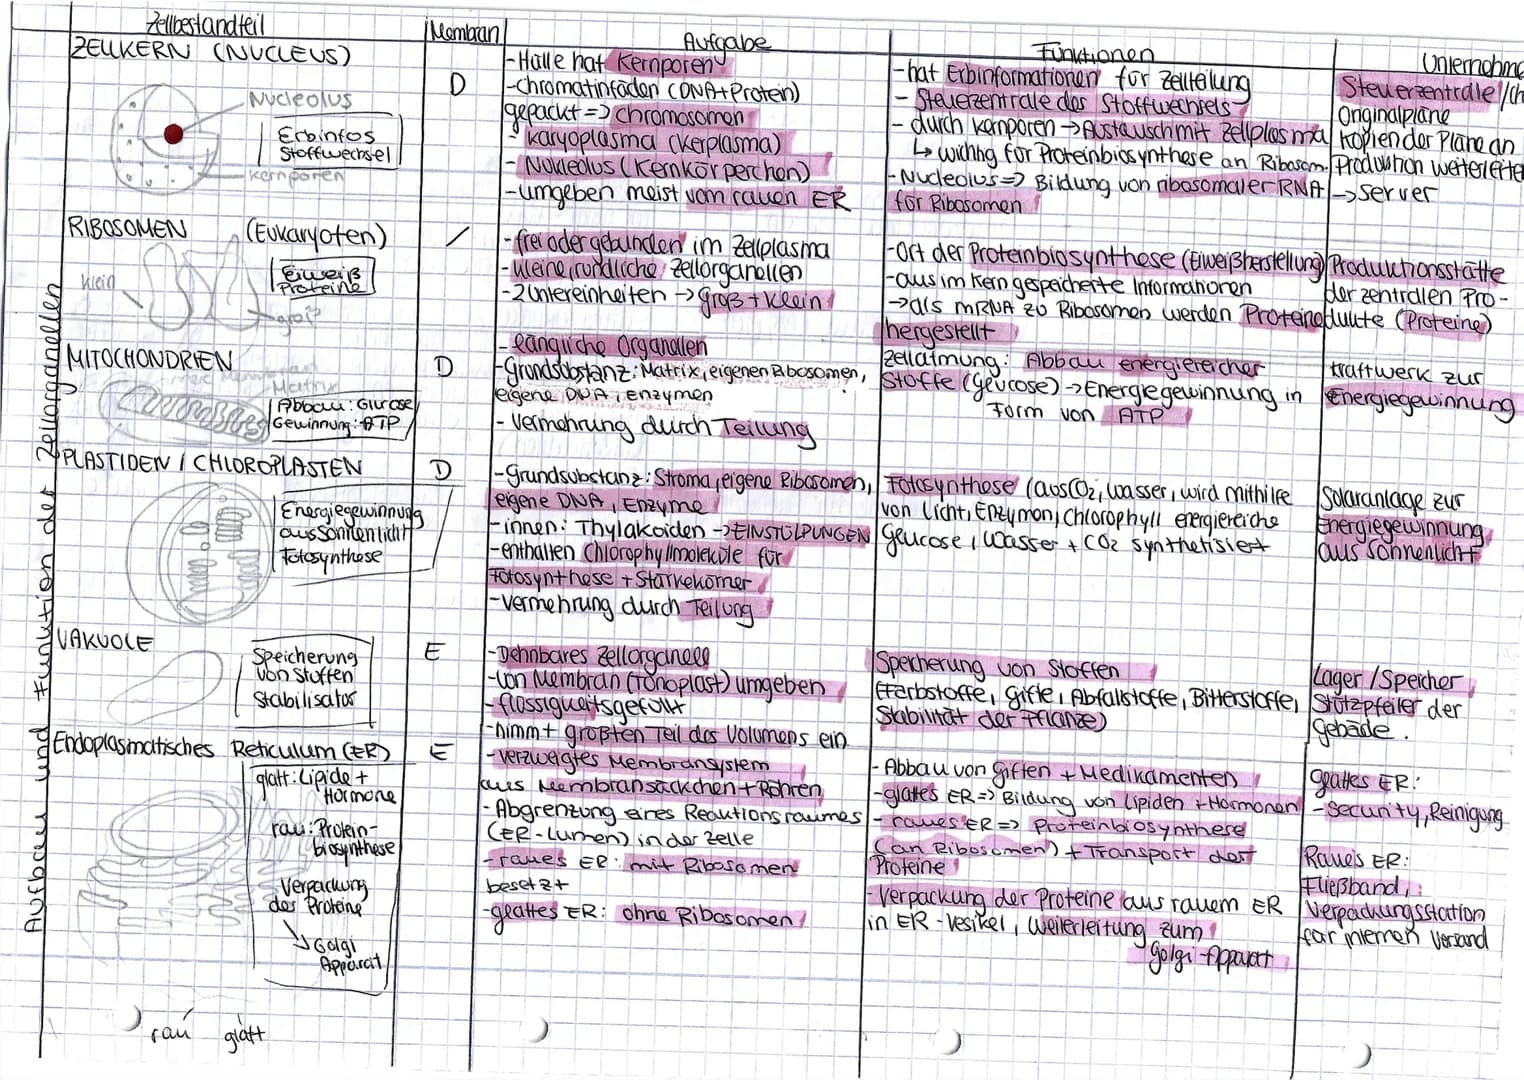 Aufbau und Funktion der Zellorganellen
Zellbestandteil
Membran
Aufgabe
Funktionen
Unternehme
ZELLKERN (NUCLEUS)
Nucleolus
Erbinfos
Stoffwechsel
Kernporen
D
-Hülle hat Kernporen
-Chromatinfäden (DNA+Protein)
gepackt => Chromosomen
- Karyoplasma (Kerplasma)
- Nukleolus (Kernkörperchen)
-umgeben meist vom rauen ER
-hat Erbinformationen für Zellteilung
- Steuerzentrale des Stoffwechsels
- durch Kernporen → Austausch mit Zellplasma
↳ wichtig für Proteinbiosynthese an Ribosom.
-Nucleolus => Bildung von ribosomaler RNA
für Ribosomen
Steuerzentrale/Ch
Originalpläne
Kopien der Pläne an
Produktion weiterleite
→ Server
RIBOSOMEN (Eukaryoten)
klein
Eiweiß
Proteine
groß
/
-frei oder gebunden im Zellplasma
-kleine, rundliche Zellorganellen
-2 Untereinheiten → groß + klein
-Ort der Proteinbiosynthese (Eiweißherstellung)
-aus im Kern gespeicherte Informationen
→ als mRNA zu Ribosomen werden Proteine
hergestellt
Produktionsstätte
der zentralen Pro-
dukte (Proteine)
MITOCHONDRIEN
Matrix
Abbau: Glucose
Gewinnung: ATP
D
- längliche Organellen
-Grundsubstanz: Matrix, eigenen Ribosomen,
eigene DNA, Enzymen
- Vermehrung durch Teilung
Zellatmung: Abbau energiereicher
Stoffe (Glucose) → Energiegewinnung in
Form von ATP
Kraftwerk zur
Energiegewinnung
PLASTIDEN / CHLOROPLASTEN
Energiegewinnung
aus Sonnenlicht
Fotosynthese
D
-Grundsubstanz: Stroma, eigene Ribosomen,
eigene DNA, Enzyme
-innen: Thylakoiden -> EINSTÜLPUNGEN
-enthalten Chlorophyllmoleküle für
Fotosynthese + Stärkekörner
-Vermehrung durch Teilung
Fotosynthese (aus CO2, Wasser, wird mithilfe
von Licht, Enzymen, Chlorophyll energiereiche
Glucose, Wasser + CO2 synthetisiert
Solaranlage zur
Energiegewinnung
aus Sonnenlicht
VAKUOLE
Speicherung
von Stoffen
Stabilisator
E
-Dehnbares Zellorganell
-von Membran (Tonoplast) umgeben
-flüssigkeitsgefüllt
-nimmt größten Teil des Volumens ein
Speicherung von Stoffen
(Farbstoffe, Gifte, Abfallstoffe, Bitterstoffe,
Stabilität der Pflanze)
Lager / Speicher
Stützpfeiler der
Gebäde.
Endoplasmatisches Reticulum (ER)
glatt: Lipide +
Hormone
rau: Protein-
biosynthese
Verpackung
des Proteine
↘ Golgi
Apparat
rau glatt
E
-verzweigtes Membransystem
aus Membransäckchen + Röhren
- Abgrenzung eines Reaktionsraumes
(ER-Lumen) in der Zelle
-raues ER: mit Ribosomen
besetzt
-glattes ER: ohne Ribosomen
- Abbau von Giften + Medikamenten
-glattes ER => Bildung von Lipiden + Hormonen
- raues ER => Proteinbiosynthese
(an Ribosomen) + Transport der
Proteine
-Verpackung der Proteine aus rauem ER
in ER-Vesikel, Weiterleitung zum
Golgi-Apparat
glattes ER:
-Security, Reinigung
Raues ER:
Fließband,
Verpackungsstation
Versand